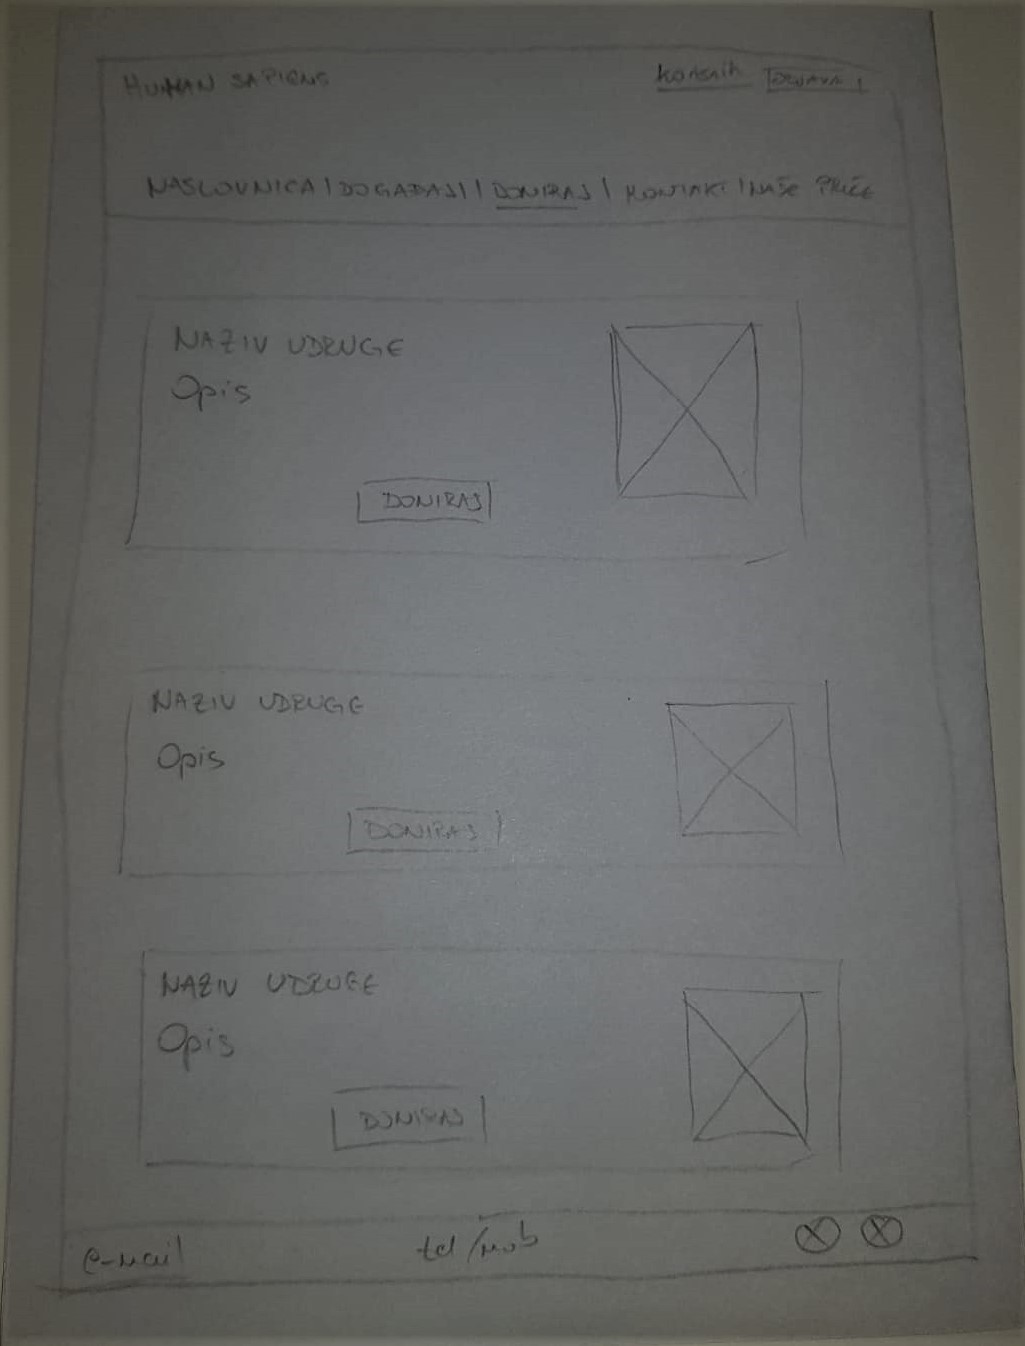 HUMAN SAPIENS
Korisnik ODJAVA
NASLOVNICA | DOGAĐAJI | DONIRAJ | KONTAKT | NAŠE PRIČE
NAZIV UDRUGE
Opis
DONIRAJ
NAZIV UDRUGE
Opis
DONIRAJ
NAZIV UDRUGE
Opis
DONIRAJ
e-mail tel/mob